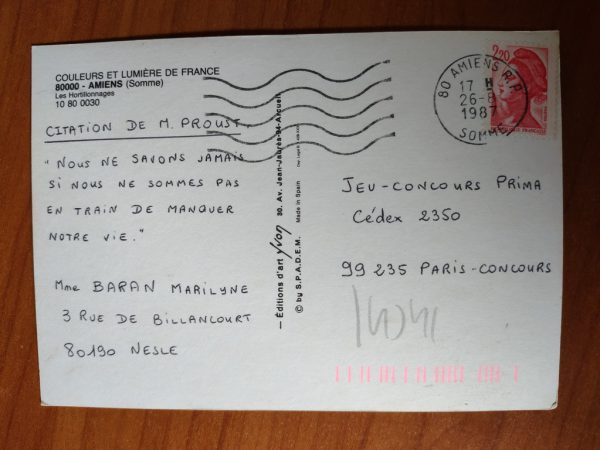 COULEURS ET LUMIÈRE DE FRANCE
80000 - AMIENS (Somme)
Les Hortillonnages
10 80 0030
CITATION DE M. PROUST.
"NOUS NE SAVONS JAMAIS
SI NOUS NE SOMMES PAS
EN TRAIN DE MANQUER
NOTRE VIE."
Mme BARAN MARILYNE
3 RUE DE BILLANCOURT
80190 NESLE
— Éditions d'art yvon 30. Av. Jean-Jaurès-94-Arcueil
© by S.P.A.D.E.M. Made in Spain
2,20
80 AMIENS R.P.
17 H
26-8
1987
SOMME
JEU-CONCOURS PRIMA
Cédex 2350
99 235 PARIS-CONCOURS